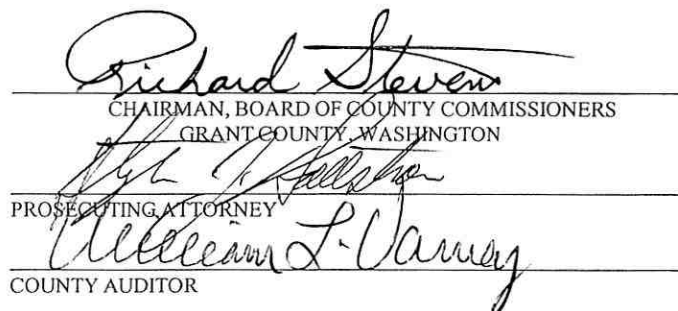 Richard Stevens
CHAIRMAN, BOARD OF COUNTY COMMISSIONERS
GRANT COUNTY, WASHINGTON
PROSECUTING ATTORNEY
William L. Varney
COUNTY AUDITOR